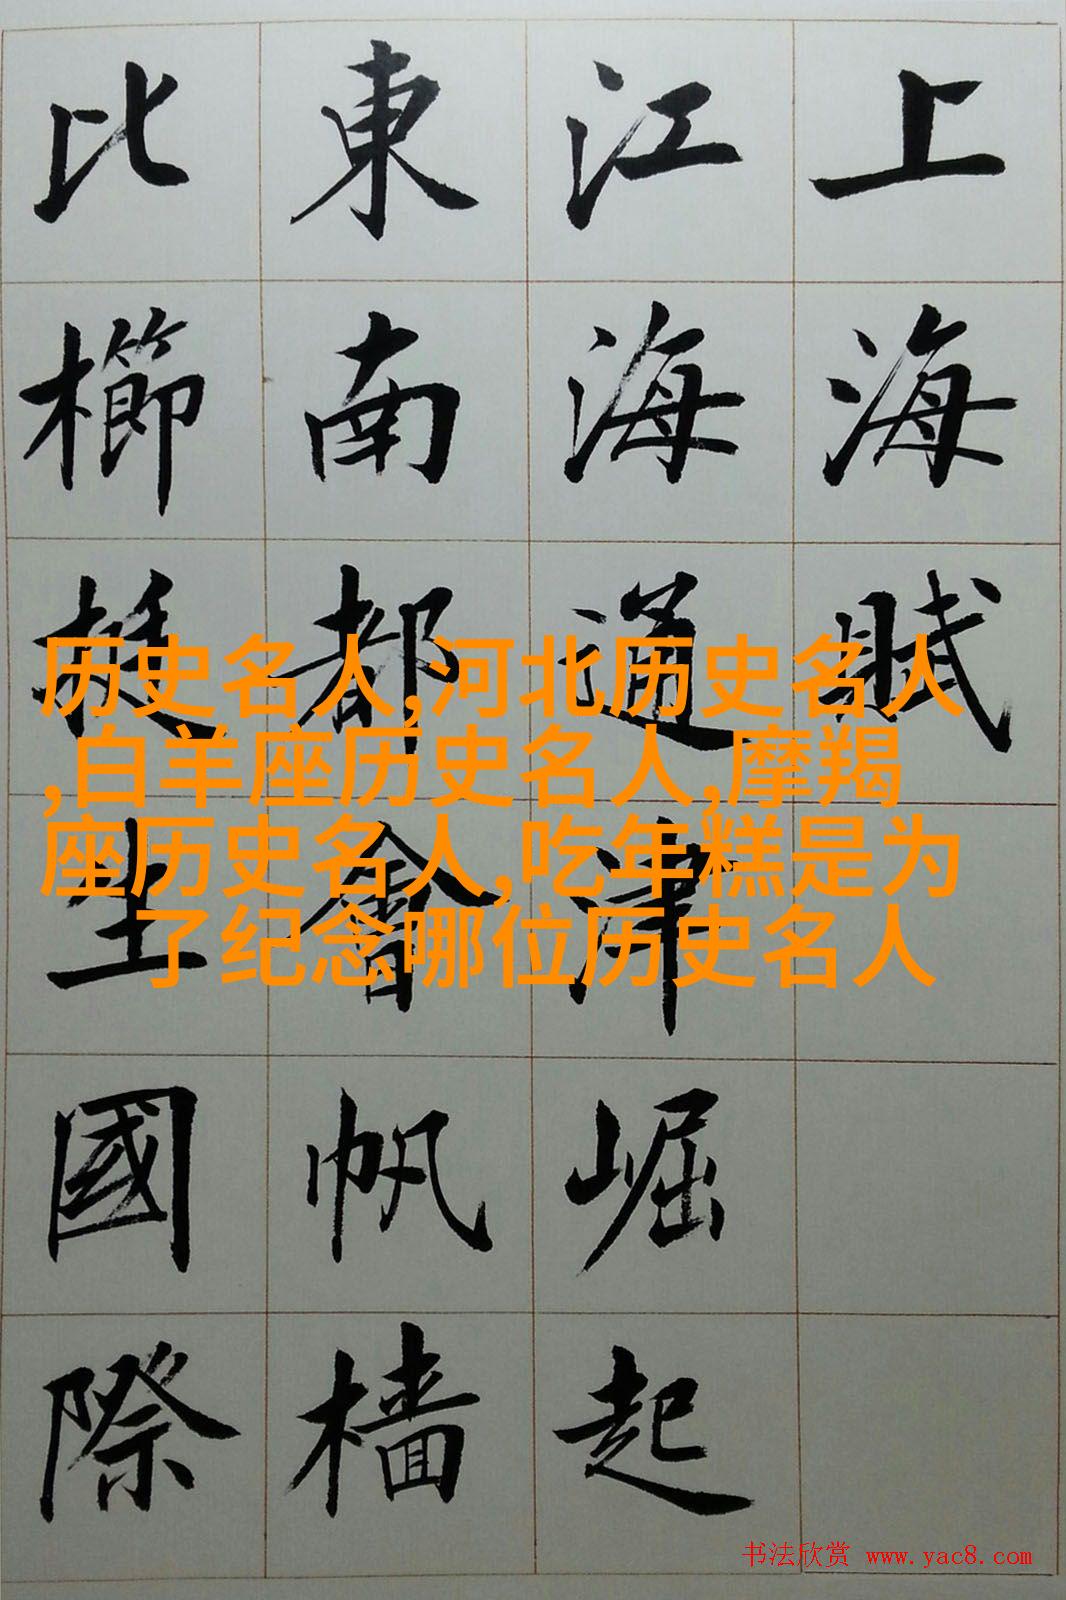 上海賦
江海通津崛起
東南都會帆檣
比櫛挺生國際
历史名人,河北历史名人
,白羊座历史名人,摩羯
座历史名人,吃年糕是为
了纪念哪位历史名人
书法欣赏 www.yac8.com